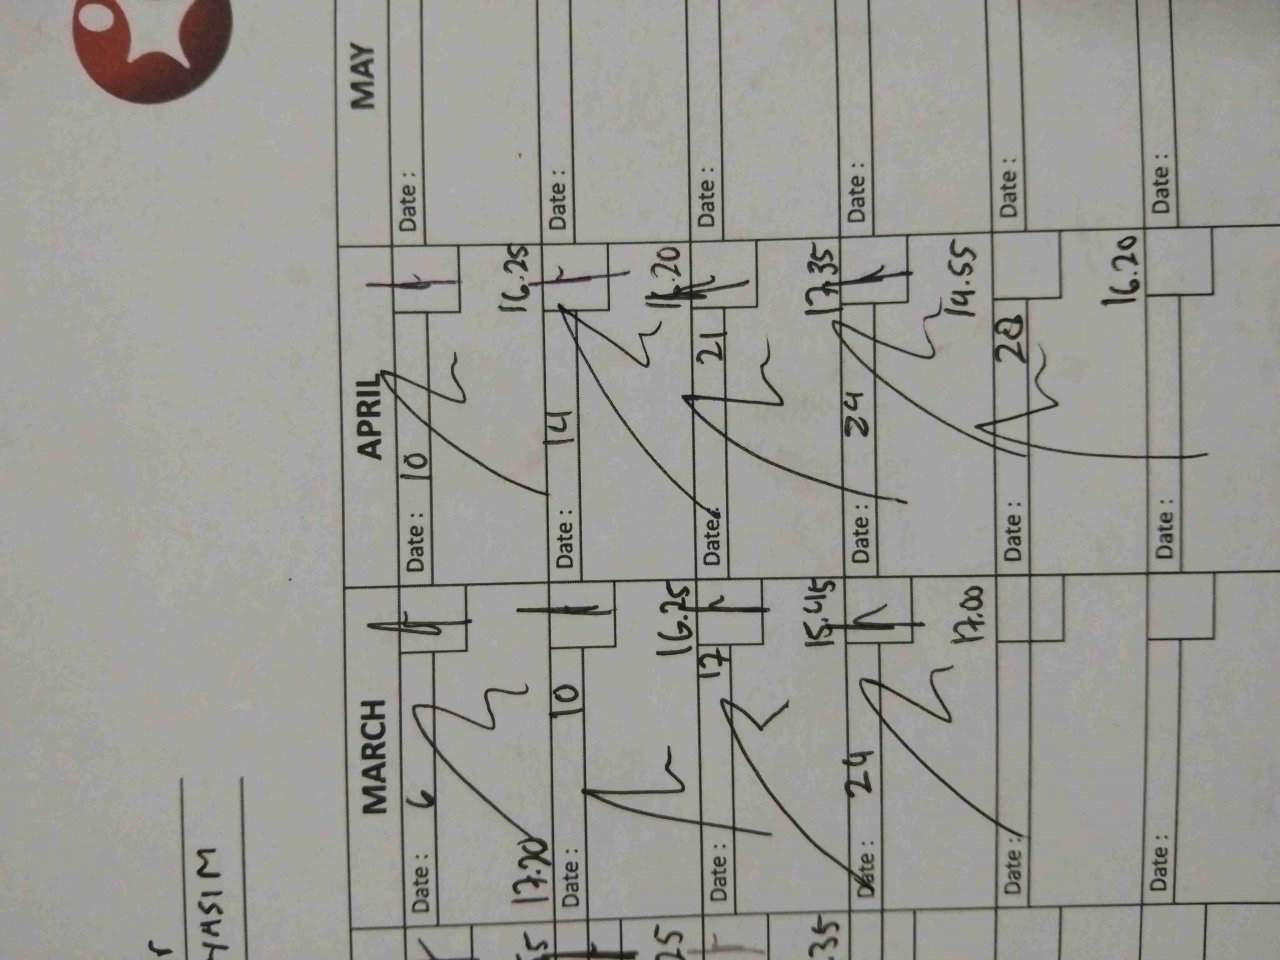 YASIM
MARCH APRIL MAY
Date : 6 Date : 10 Date :
17.20 16.25
Date : 10 Date : 14 Date :
16.25 16.20
Date : 17 Date : 21 Date :
15.45 17.35
Date : 24 Date : 24 Date :
17.00 14.55
Date : Date : 28 Date :
16.20
Date : Date : Date :